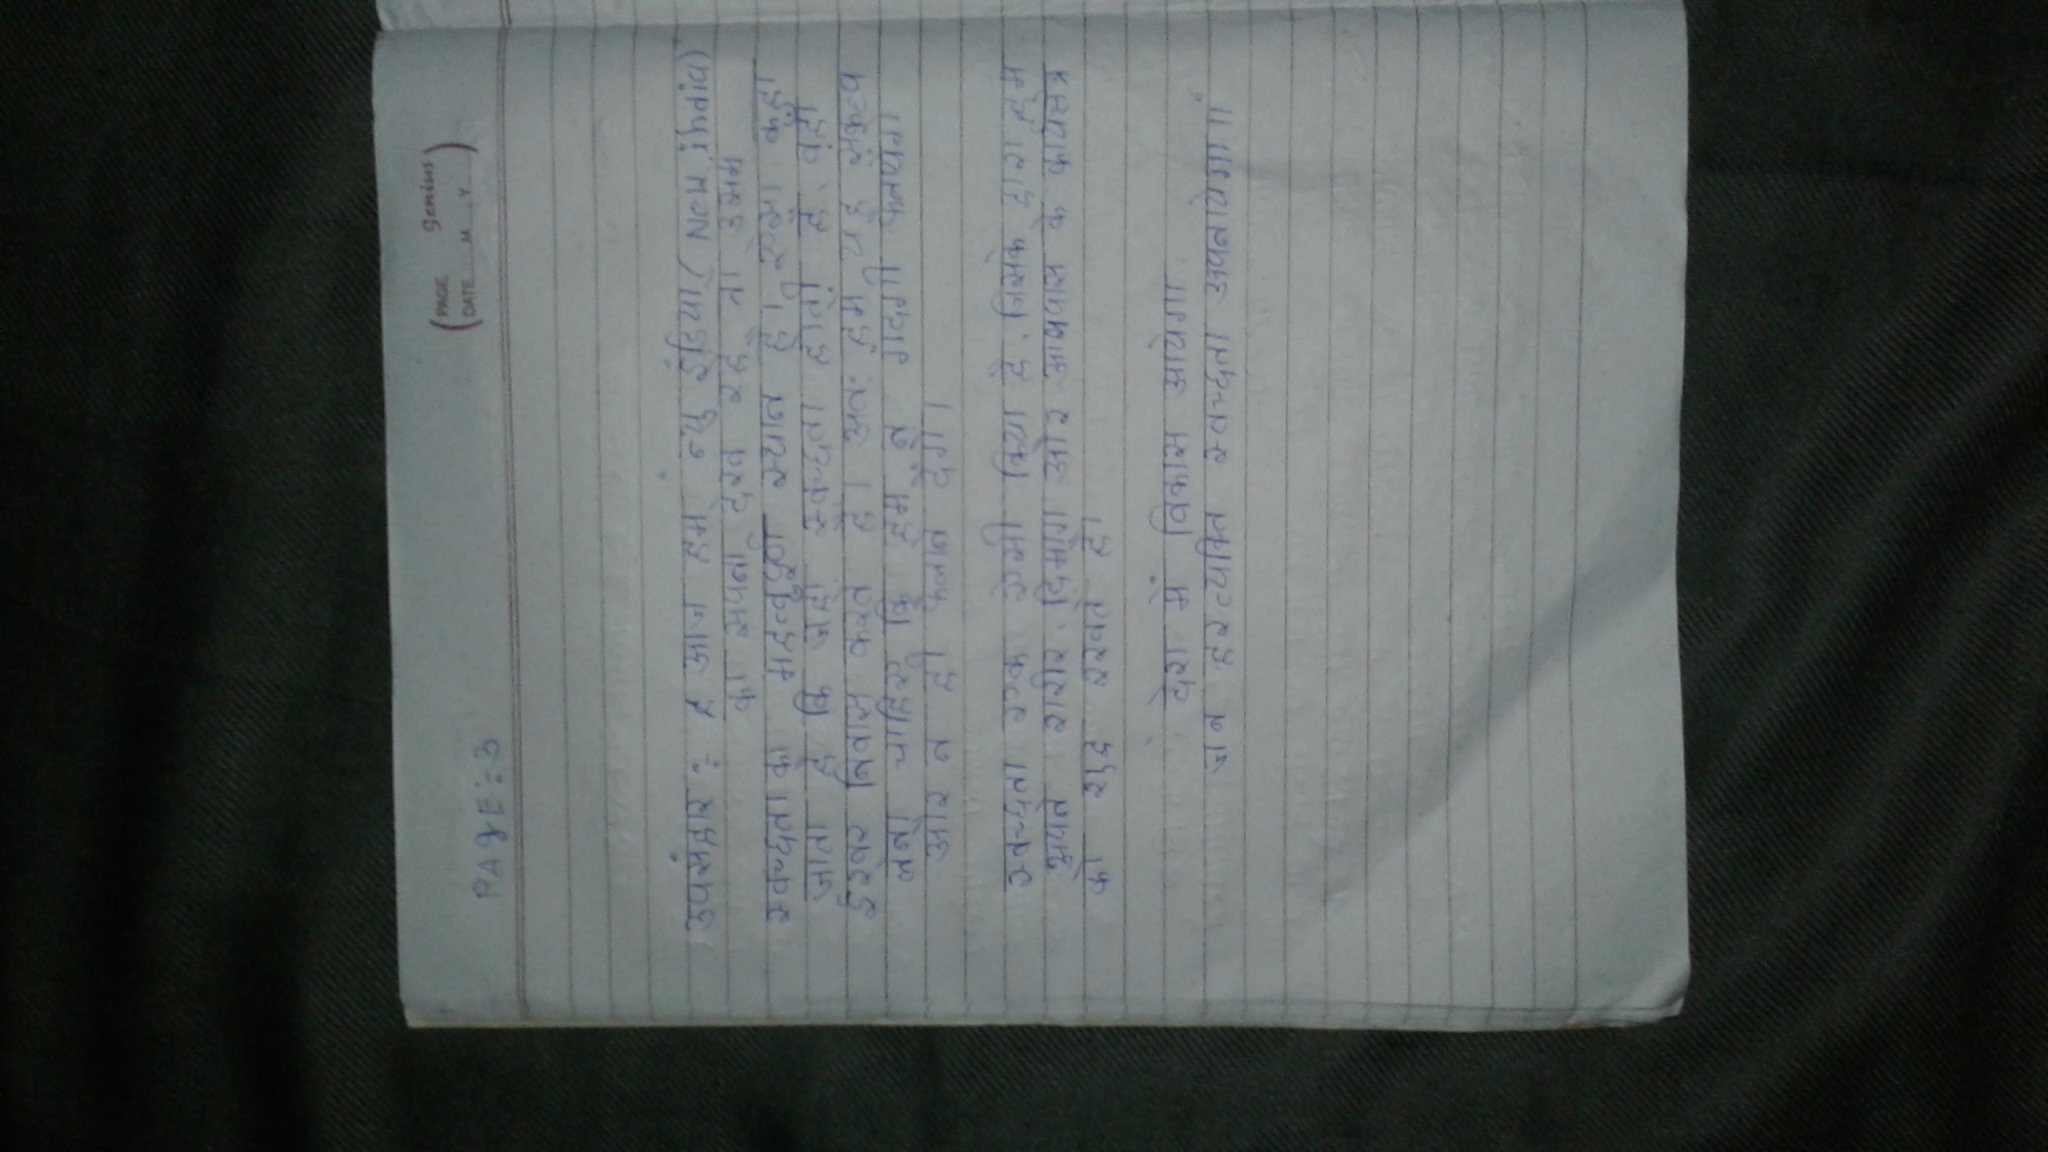 PAGE genius
DATE M Y
PAgE:- 3
उपसंहार :- आज हम न्यू इंडिया ( New india)
का सपना देख रहे तो उसमे
स्वच्छता का महत्वपूर्ण स्थान है। ऐसा कहा
जाता है कि जहाँ स्वच्छता होती है, वहाँ
ईश्वर निवास करते है। अतः हमे यह संकल्प
लेना चाहिए कि हम न गंदगी फैलायेंगे
और न ही फैलाने देंगे।
स्वच्छता एक ऐसी क्रिया है, जिसके द्वारा हम
अपने शरीर, दिमाग और आसपास के कार्यक्षेत्र
को शुद्ध रखते है।
देश में विकास आयेगा
जब हर व्यक्ति स्वच्छता अपनायेगा॥